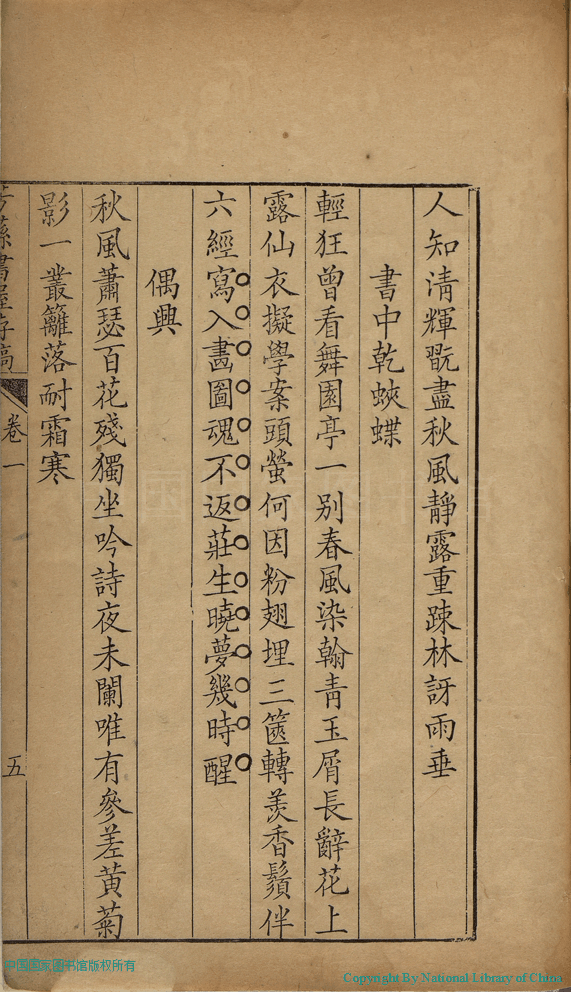 人知清輝翫盡秋風靜露重踈林訝雨垂
書中乾蛺蝶
輕狂曾看舞園亭一别春風染翰青玉屑長辭花上
露仙衣擬學案頭螢何因粉翅埋三篋轉羨香鬚伴
六經寫入畵圖魂不返莊生曉夢幾時醒
偶興
秋風蕭瑟百花殘獨坐吟詩夜未闌唯有參差黃菊
影一叢籬落耐霜寒
蓀書屋存稿
卷一
五
中国国家图书馆版权所有
Copyright By National Library of China